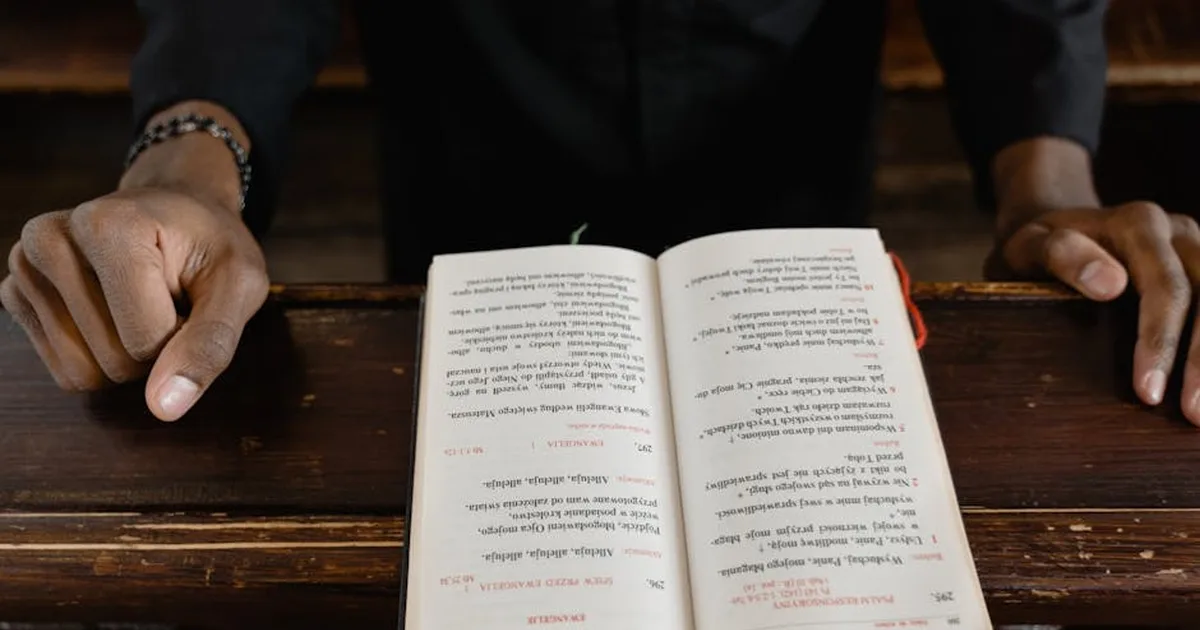 295. PSALM RESPONSORYJNY
Refren: Wysłuchaj, Panie, mojego błagania.
1 Usłysz, Panie, modlitwę moją, †
w swojej wierności przyjm moje błaga-
nie, *
wysłuchaj mnie w swej sprawiedliwości.
2 Nie wzywaj na sąd swojego sługi, *
bo nikt z żyjących nie jest sprawiedliwy
przed Tobą.
Refren.
5 Wspominam dni dawno minione, †
rozmyślam o wszystkich Twych dziełach, *
rozważam dzieło rąk Twoich.
6 Wyciągam do Ciebie ręce, *
jak zeschła ziemia, pragnie Cię moja du-
sza.
Refren.
7 Wysłuchaj mnie prędko, Panie, *
albowiem duch mój omdlewa.
8 Daj mi już o świcie doznać łaski Twojej, *
bo w Tobie pokładam nadzieję.
Refren.
10 Naucz mnie spełniać Twoją wolę, *
bo Ty jesteś moim Bogiem.
Niech mnie Twój dobry duch prowadzi *
po bezpiecznej równinie.
Refren.
EWANGELIE
296. ŚPIEW PRZED EWANGELIĄ Mt 25,34
Aklamacja: Alleluja, alleluja, alleluja.
Pójdźcie, błogosławieni Ojca mojego,
weźcie w posiadanie królestwo,
przygotowane wam od założenia świata.
Aklamacja: Alleluja, alleluja, alleluja.
297. EWANGELIA Mt 5,1-12a
Wielka nagroda w niebie
Słowa Ewangelii według świętego Mateusza
Jezus, widząc tłumy, wyszedł na górę.
A gdy usiadł, przystąpili do Niego Jego ucz-
niowie. Wtedy otworzył swoje usta i nauczał
ich tymi słowami:
„Błogosławieni ubodzy w duchu, albo-
wiem do nich należy królestwo niebieskie.
Błogosławieni, którzy się smucą, albowiem
oni będą pocieszeni.
Błogosławieni cisi, albowiem oni na włas-
ność posiądą ziemię.
Błogosławieni, którzy łakną i pragną spra-
wiedliwości, albowiem oni będą nasyceni.